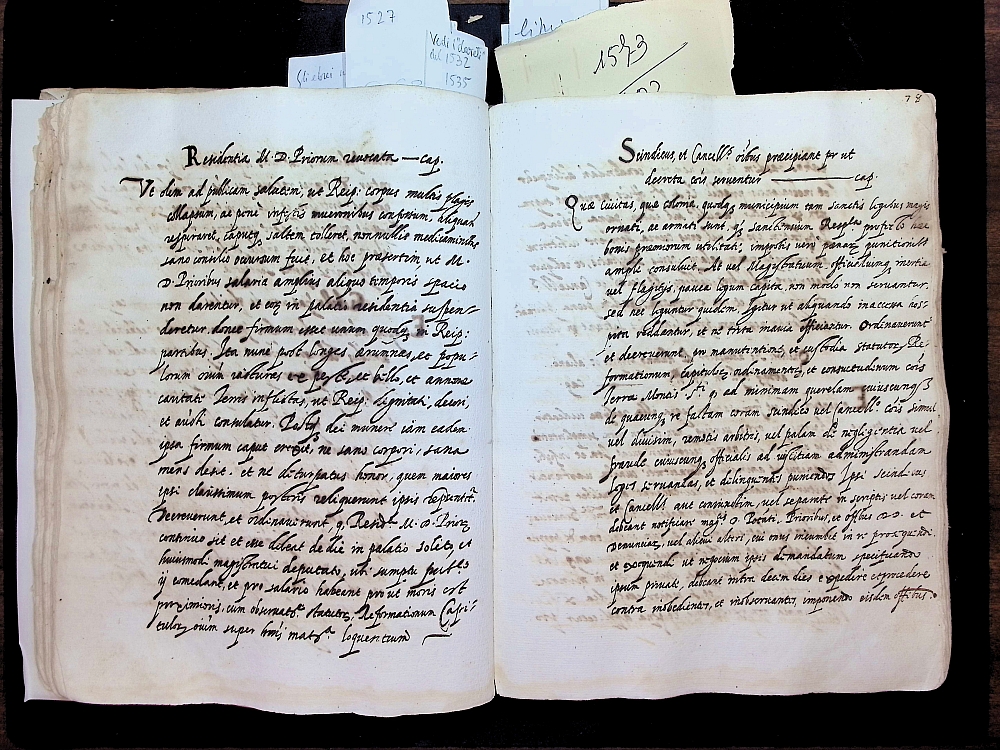 1527
Vedi i "decreti"
del 1532
1535
Gli ebrei
1543
78
Residentia M. D. Priorum revocata — cap.
Ut olim ad publicam salutem, ut Reip: corpus multis plagis
collapsum, ac penè infestis mucronibus confossum, aliquando
respiraret, caputq3 saltem tolleret, nonnullis medicaminibus
sano consilio occursum fuit, et hoc praesertim, ut M.
D. Prioribus salaria amplius aliquo temporis spacio
non darentur, et eorum in palatio residentia suspen-
deretur, donec firmum esset unum quodq3 in Reip:
partibus. Ita nunc post longas aerumnas, et popu-
lorum oium iacturas ex peste, et bello, et annonae
caritate terris inflictas, ut Reip. dignitati, decori,
et aedi consulatur. Postq3 dei munere iam eadem
ipsa firmum caput erexit, ne sano corpori, sana
mens desit. et ne deturpatus honor, quem maiores
ipsi clarissimum posteris reliquerunt ipsis
Decreverunt, et ordinaverunt, q. Resid.a M. D. Prior3
continuo sit et esse debeat de die in palatio solito, et
huiusmodi magistratui deputato, ubi sumptu pub.co
ii comedant, et pro salario habeant prout moris est
proximioris, cum observat.e statutor3, Reformationum Capi-
tulor3 oium super hmoi mat.a loquentium
Scindicus, et Cancell.s oibus praecipiant pr ut
decreta cois serventur — cap.
Quae Civitas, quae colonia, quodq3 municipium tam sanctis legibus magis
ornati, ac armati sunt, q. sanctionum Resp.
bonis praemiorum utilitati, improbis vero penar3 punitionibus
ample consuluit. At vel Magistratuum officialiumq3 inertia
vel flagitiis, pauca legum capita, non modo non servantur,
sed nec leguntur quidem. Igitur ut aliquando inaccessa
reddantur, et ex trita invia efficiantur. Ordinaverunt
et decreverunt, in manutentione, et custodia Statutor3 Re-
formationum, capitulor3 ordinamentor3, et consuetudinum cois
Terrae Montis S.ti q. ad minimam querelam cuiuscunq3
de quacunq3 re factam coram Scindico vel Cancell.o cois simul
vel divisim, remotis arbitris, vel palam de negligentia vel
fraude cuiuscunq3 officialis ad iustitiam administrandam
leges servandas, et delinquentes puniendos Ipsi scindicus
et Cancell.s aut coniunctim, vel separatim in scriptis vel coram
debeant notificare mag.co D. Potati, Prioribus, et offibus DD. et
Denunciar3, vel alicui alteri, cui onus incumbit in re prosequendi.
et exequendi. ut negocium ipsis demandatum
ipsum privati, debeant intra decem dies expedire et procedere
contra inobedientes, et inobservantes, imponendo eisdem offibus.